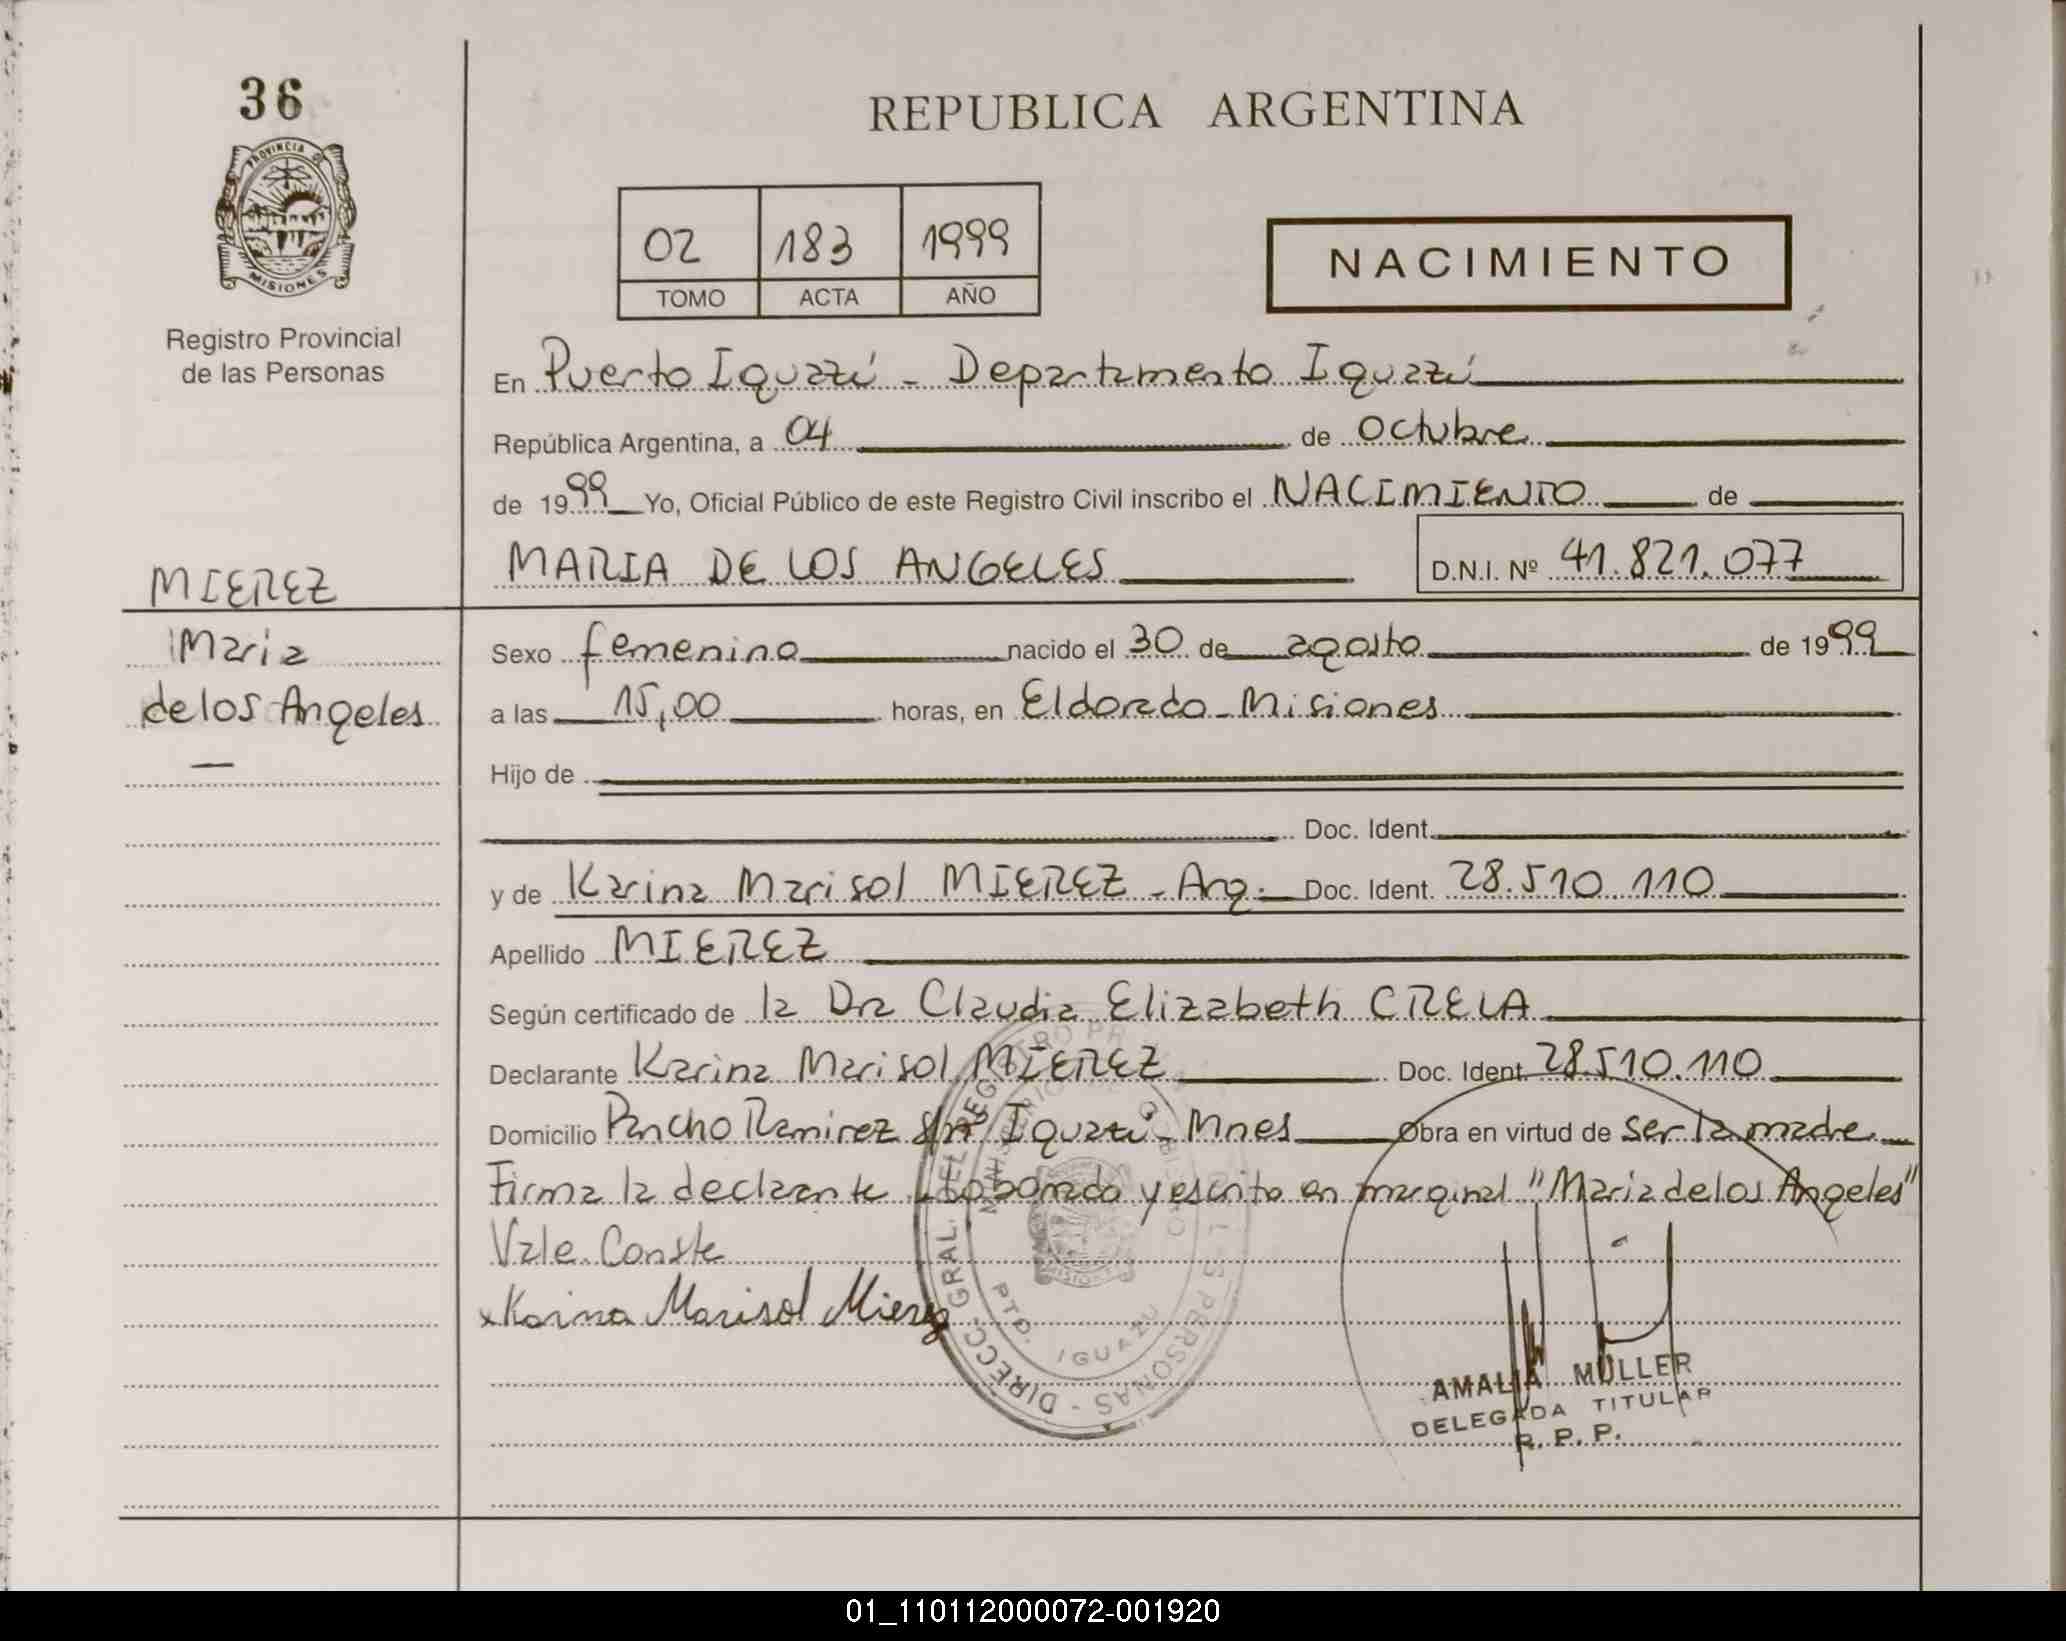 36
PROVINCIA DE
MISIONES
Registro Provincial
de las Personas
REPUBLICA ARGENTINA
02 183 1999
TOMO ACTA AÑO
NACIMIENTO
En Puerto Iguazú - Departamento Iguazú
República Argentina, a 04 de Octubre
de 1999 Yo, Oficial Público de este Registro Civil inscribo el NACIMIENTO de
MARIA DE LOS ANGELES D.N.I. Nº 41.821.077
MIEREZ
Maria
de los Angeles
Sexo femenino nacido el 30 de agosto de 1999
a las 15,00 horas, en Eldorado - Misiones
Hijo de
Doc. Ident.
y de Karina Marisol MIEREZ - Arg. Doc. Ident. 28.510.110
Apellido MIEREZ
Según certificado de la Dra Claudia Elizabeth CRELA
Declarante Karina Marisol MIEREZ Doc. Ident. 28.510.110
Domicilio Pancho Ramirez s/nº Iguazú - Mnes Obra en virtud de ser la madre
Firma la declarante y escrito en marginal "Maria de los Angeles"
Vale. Conste
x Karina Marisol Mierez
DIRECC. GRAL. DEL REGISTRO PR PERSONAS
MINISTERIO
MISIONES
PTO. IGUAZU
AMALIA MULLER
DELEGADA TITULAR
R. P. P.
01_110112000072-001920